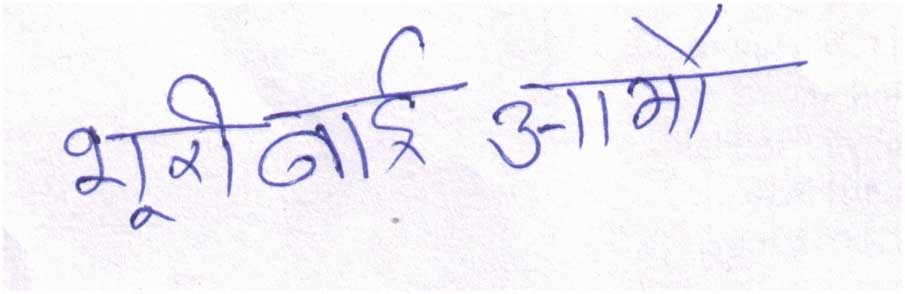 भूरीबाई आमौ